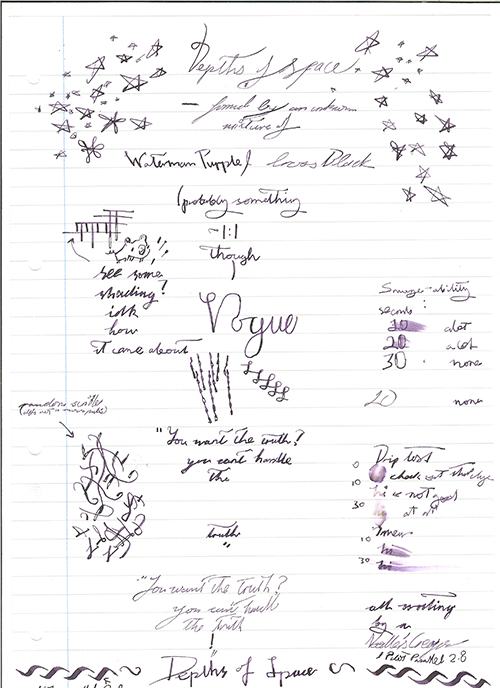 Depths of Space
- formed by an unknown
mixture of
Waterman Purple/ Levas Black
(probably something
~1:1
though
see some
shading!
idk
how
it came about
Vogue
Smudge-ability
seconds:
10 alot
20 a lot
30 none
20 none
(random scribbles
"You want the truth?
you can't handle
the
truth
"
Drip test
0
10 check out that dye
hi is not good
30 at all
Smear
10 hi
30 hi
"You want the truth?
you can't handle
the truth
!"
all writing
by a
Noodler's Creaper
& Pilot Parallel 3.8
Depths of Space